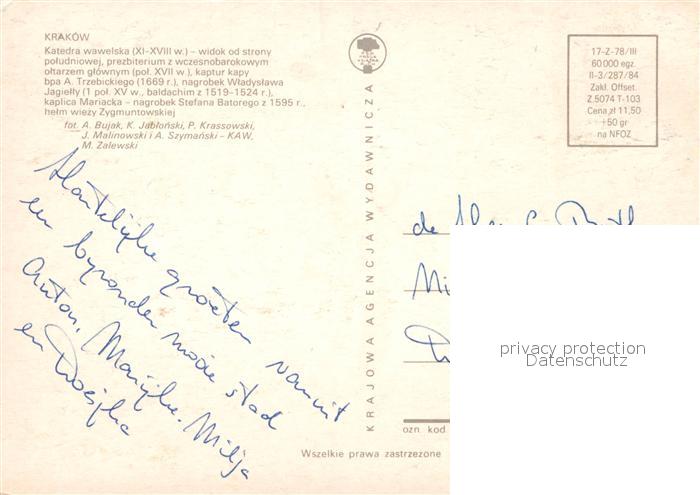 KRAKÓW
Katedra wawelska (XI-XVIII w.) – widok od strony
południowej, prezbiterium z wczesnobarokowym
ołtarzem głównym (poł. XVII w.), kaptur kapy
bpa A. Trzebickiego (1669 r.), nagrobek Władysława
Jagiełły (1 poł. XV w., baldachim z 1519–1524 r.),
kaplica Mariacka – nagrobek Stefana Batorego z 1595 r.,
hełm wieży Zygmuntowskiej
fot. A. Bujak, K. Jabłoński, P. Krassowski,
J. Malinowski i A. Szymański – KAW,
M. Zalewski
Hartelijke groeten vanuit
een byzonder mooie stad
Anton, Marijke, Milja
en
KRAJOWA AGENCJA WYDAWNICZA
17-Z-78/III
60 000 egz.
II-3/287/84
Zakł. Offset.
Z.5074 T-103
Cena zł 11,50
+50 gr
na NFOZ
de
Mi
privacy protection
Datenschutz
ozn kod
Wszelkie prawa zastrzeżone